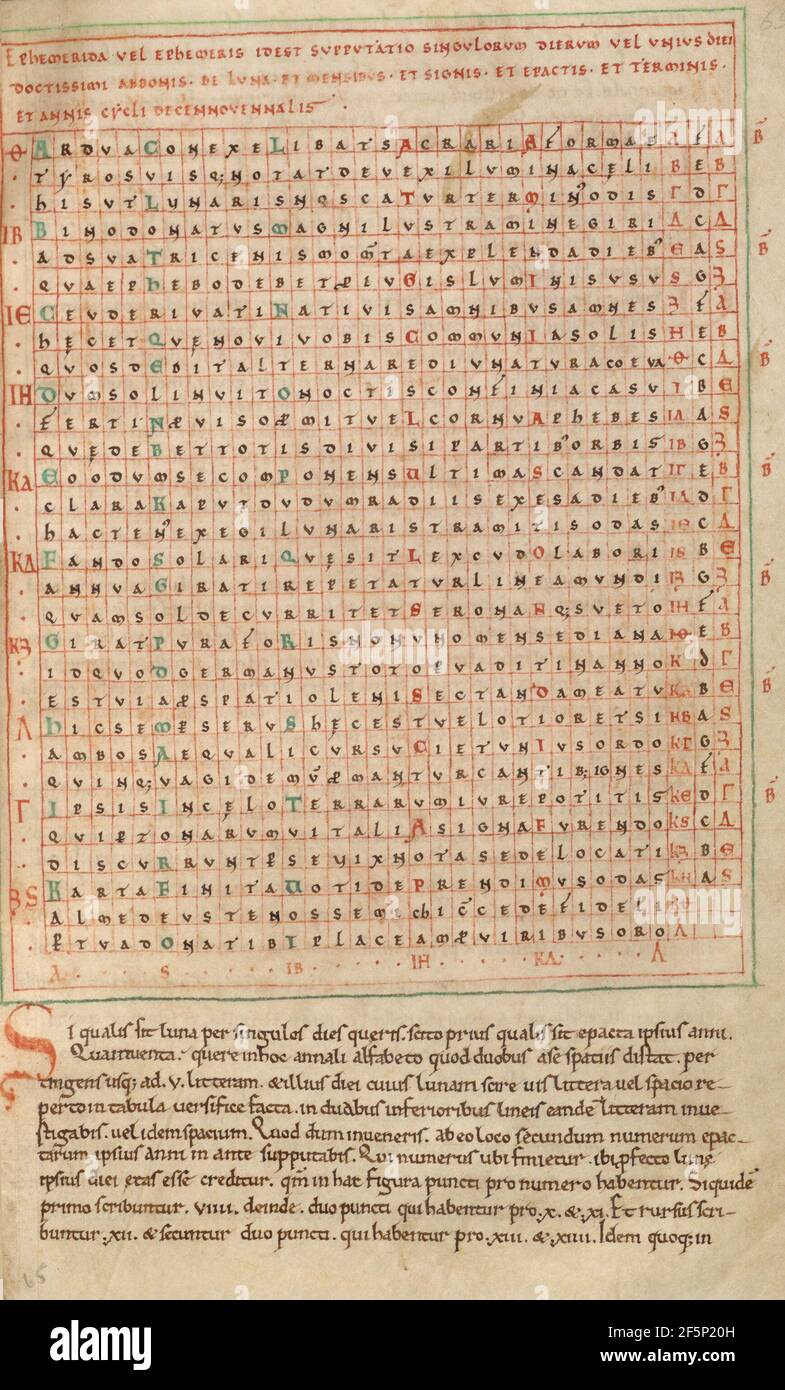 EPHEMERIDA VEL EPHEMERIS IDEST SUPPUTATIO SINGULORUM DIERUM VEL UNIUS DIEI
DOCTISSIMI ABBONIS. DE LUNA. ET MENSIBUS. ET SIGNIS. ET EPACTIS. ET TERMINIS.
ET ANNIS CYCLI DECENNOVENNALIS
Θ ARDVACONEXELIBATSACRARIAFORMAB
TYROSVISQ;NOTATDEVEXILVMINACELI
HISVTLVNARISNOSCATVRTERMINꝰODIS
IB BINODONATVSMAGNILVSTRAMINEGIRI
ADSVATRICENISMOMTAEXPLENDADIEBꝰ
QVAEPHEBODEBETPIVGISLVMINISVSVS
IE CEVDERIVATINATIVISAMNIBVSAMNES
HECETQVENOVIVOBISCOMMVNIASOLIS
QVOSDEBITALTERNAREDIVNATVRACOEVA
IH DVMSOLINVITONOCTISCONFINIACASV
FERTINPVISOPMITVELCORNVAPHEBES
QVEDEBETTOTISDIVISIPARTIBꝰORBIS
KA EOODVMSECOMPONENSULTIMASCANDAT
CLARAKAPVTDVDVMRADIISEXESADIEBꝰ
HACTENꝰEXEGILVNARISTRAMITISODAS
KΔ FANDOSOLARIQVESITLEXCVDOLABORI
ANNVAGIRATIREPETATVRLINEAMVNDI
QVAMSOLDECVRRITETSERONANQ;SVETO
KZ GIRATPVRAFORISNONVNOMENSEDIANA
IDQVODGERMANVSTOTOPVADITINANNO
ESTVIAPSPATIOLENISECTANDAMEATV
Λ HICSEMPSERVSHECESTVELOTIORETSI
AMBOSAEQVALICVRSVCIETVNIVSORDO
QVINQ;VAGIDEMVPMANTVRCANTIB;IGNES
Γ IPSISINCELOTERRARVMIVREPOTITIS
QVIPTONARVMVITALIASIGNAFVRENDO
DISCVRRVNTPSEVIXNOTASEDELOCATI
BS KARTAFINITAUOTIDEPRENDIMVSODAS
ALMEDEVSTENOSSEMICHICCEDEFIDEI
PTVADONATIBIPLACEAMPVIRIBVSORO
Λ . . . . . S . . . . . IB . . . . . IH . . . . . KΔ . . . . . Λ
Si qualis sit luna per singulos dies queris. scito prius qualis sit epacta ipsius anni.
Qua inventa. quere in hoc annali alfabeto quod duobus a se spatiis distat. per
tingens usq; ad .v. litteram. & illius diei cuius lunam scire uis littera uel spacio re-
perto in tabula uersifice facta. in duabus inferioribus lineis eande litteram inue-
stigabis. uel idem spacium. Quod dum inueneris. ab eo loco secundum numerum epac-
tarum ipsius anni in ante supputabis. Qui numerus ubi finietur. ibi pfecto lune
ipsius diei etas esse creditur. qm in hac figura puncti pro numero habentur. Siquide
primo scribuntur .viiii. deinde. duo puncti qui habentur pro .x. & .xi. Et rursus scri-
buntur .xii. & secuntur duo puncti. qui habentur pro .xiii. & .xiiii. Idem quoq; in
65
alamy
Image ID: 2F5P20H
www.alamy.com